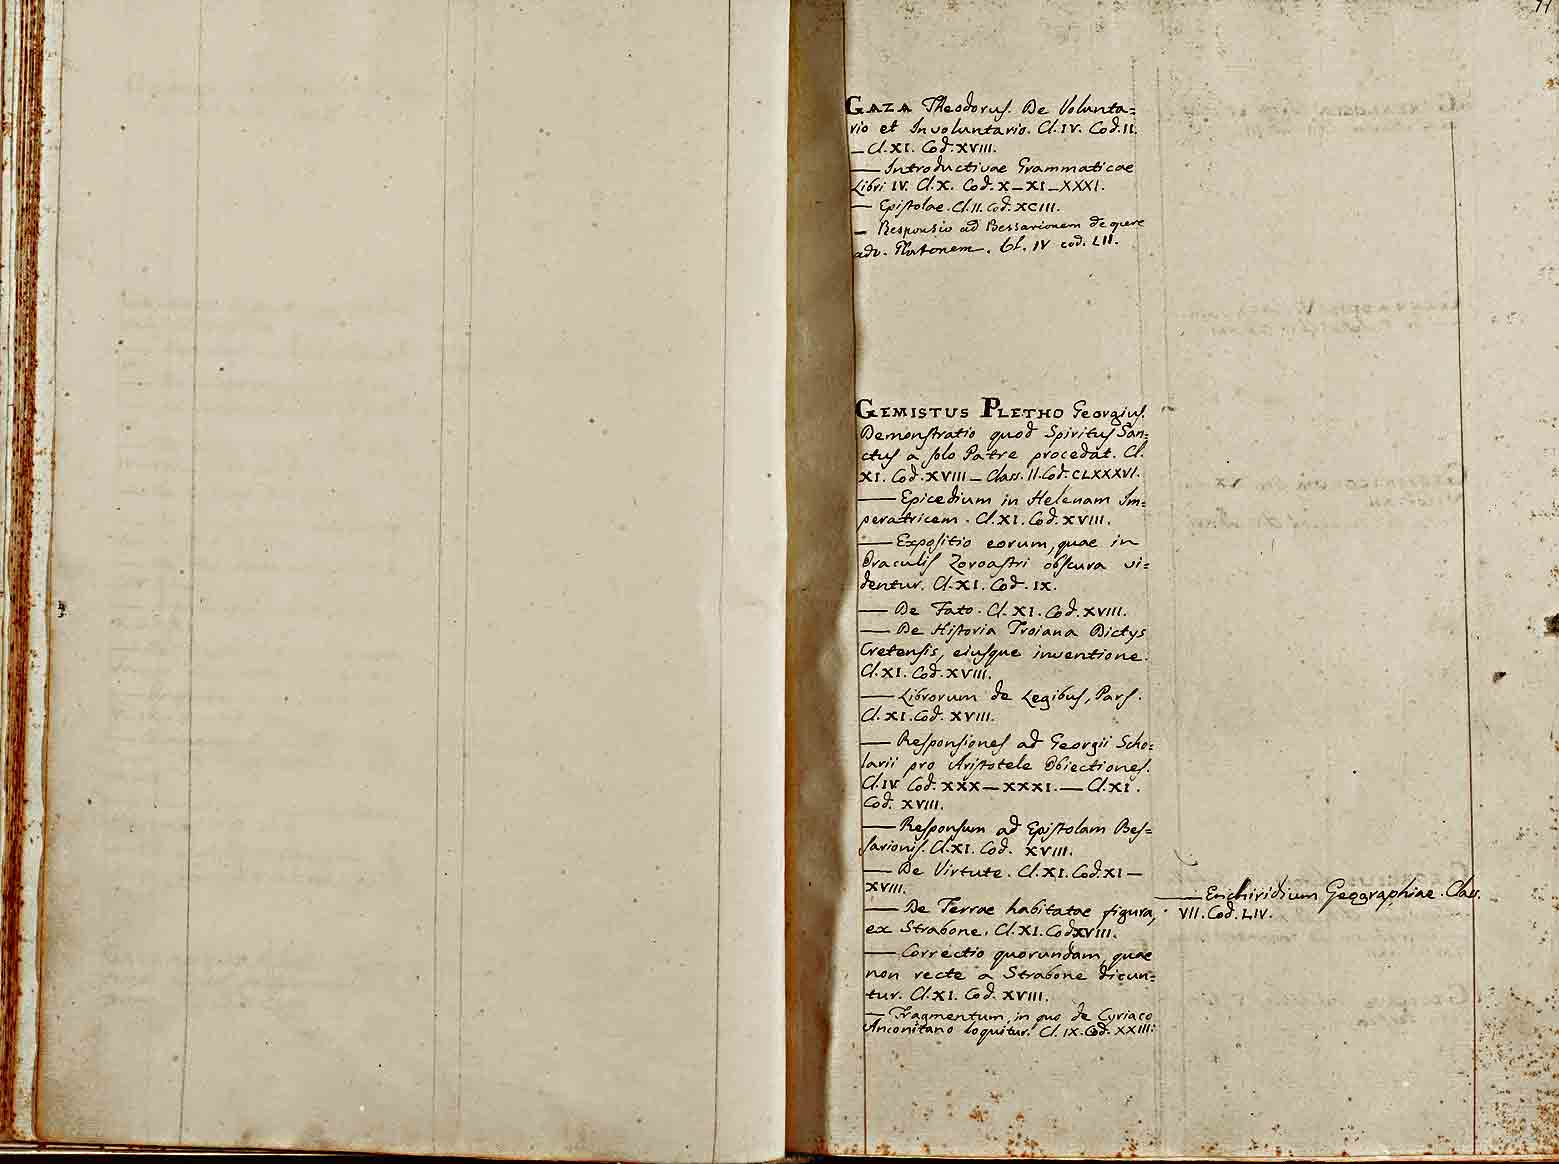 GAZA Theodorus. De Volunta=
rio et Involuntario. Cl. IV. Cod. II.
— Cl. XI. Cod. XVIII.
— Introductivae Grammaticae
Libri IV. Cl. X. Cod. X – XI – XXXI.
— Epistolae. Cl. II. Cod. XCIII.
— Responsio ad Bessarionem
adv. Platonem. Cl. IV cod. LII.
GEMISTUS PLETHO Georgius.
Demonstratio quod Spiritus San=
ctus a solo Patre procedat. Cl.
XI. Cod. XVIII – Class. II. Cod. CLXXXVI.
— Epicedium in Helenam Im=
peratricem. Cl. XI. Cod. XVIII.
— Expositio eorum, quae in
Oraculis Zoroastri obscura vi=
dentur. Cl. XI. Cod. IX.
— De Fato. Cl. XI. Cod. XVIII.
— De Historia Troiana Dictys
Cretensis, eiusque inventione.
Cl. XI. Cod. XVIII.
— Librorum de Legibus, Pars.
Cl. XI. Cod. XVIII.
— Responsiones ad Georgii Scho=
larii pro Aristotele Obiectiones.
Cl. IV Cod. XXX – XXXI. — Cl. XI.
Cod. XVIII.
— Responsum ad Epistolam Bes=
sarionis. Cl. XI. Cod. XVIII.
— De Virtute. Cl. XI. Cod. XI –
XVIII.
— De Terrae habitatae figura,
ex Strabone. Cl. XI. Cod XVIII.
— Correctio quorundam, quae
non recte a Strabone dicun=
tur. Cl. XI. Cod. XVIII.
— Fragmentum, in quo de Cyriaco
Anconitano loquitur. Cl. IX. Cod. XXIII.
— Enchiridium Geographiae. Class.
VII. Cod. LIV.